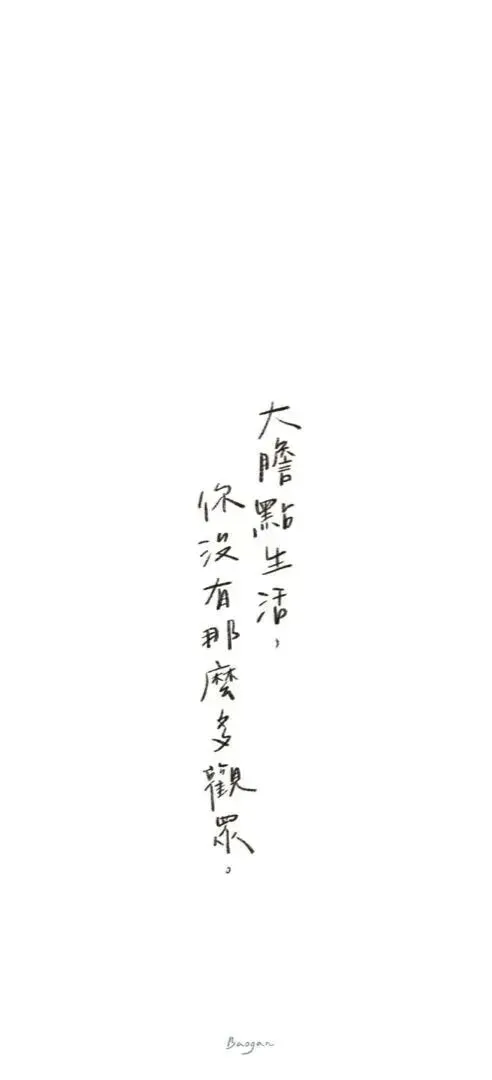 大膽點生活，
你沒有那麼多觀眾。
Baogan